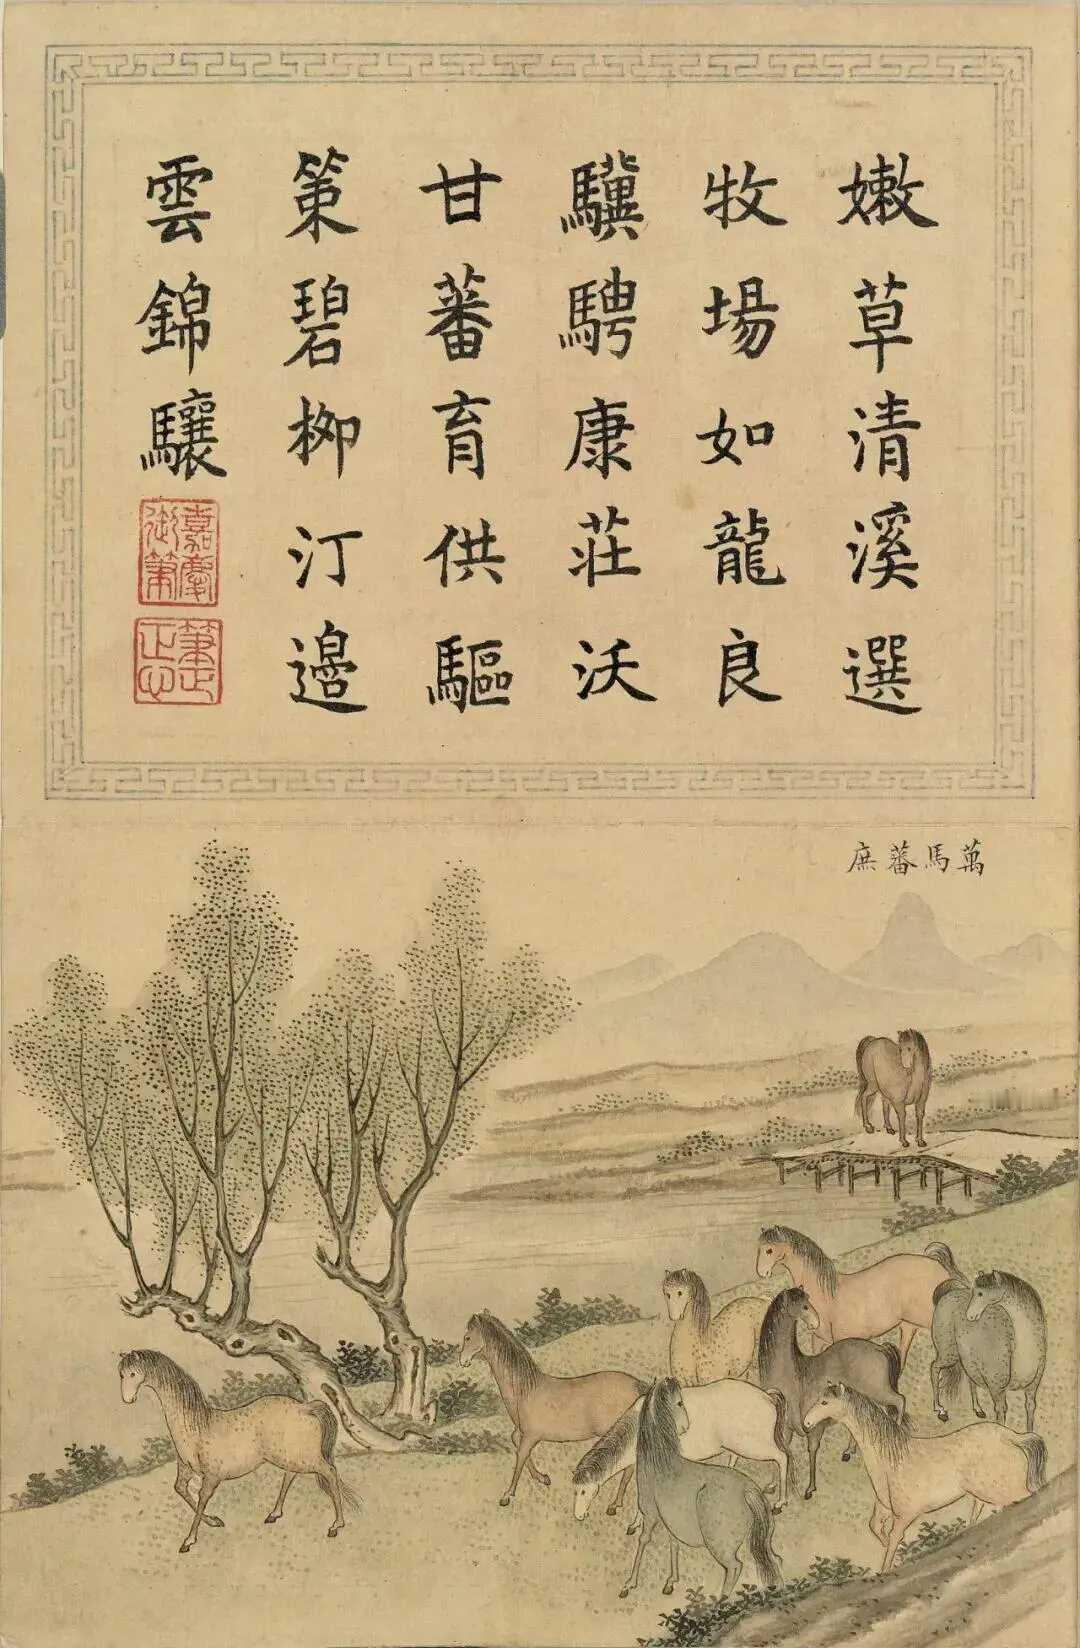 嫩草清溪選
牧場如龍良
驥騁康莊沃
甘蕃育供驅
策碧栁汀邊
雲錦驤
嘉慶御筆
萬馬蕃庶